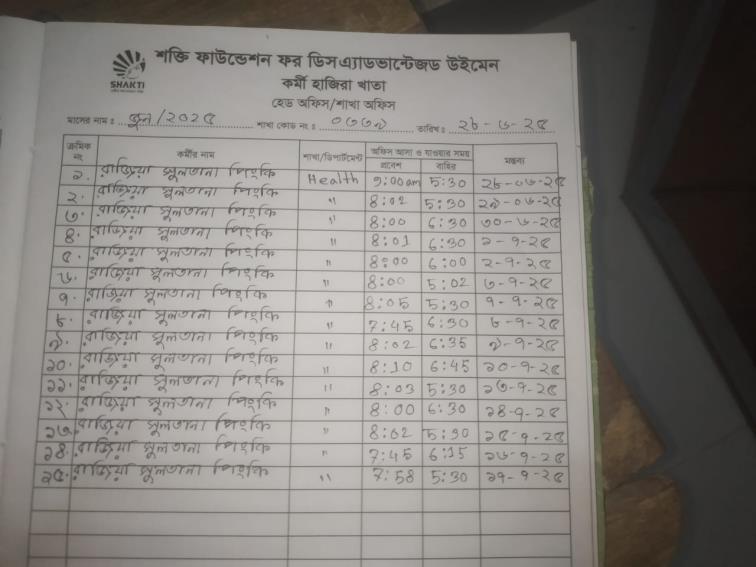 শক্তি ফাউন্ডেশন ফর ডিসএ্যাডভান্টেজড উইমেন
SHAKTI
কর্মী হাজিরা খাতা
হেড অফিস/শাখা অফিস
মাসের নাম : জুন/২০২৫ শাখা কোড নং : ০৭৭৯ তারিখ : ২৮-৬-২৫
ক্রমিক নং কর্মীর নাম শাখা/ডিপার্টমেন্ট অফিস আসা ও যাওয়ার সময় প্রবেশ বাহির মন্তব্য
১. রাজিয়া সুলতানা পিংকি Health 9:00am 5:30 ২৮-০৬-২৫
২. রাজিয়া সুলতানা পিংকি " 8:02 5:30 ২৯-০৬-২৫
৩. রাজিয়া সুলতানা পিংকি " 8:00 6:30 ৩০-৬-২৫
৪. রাজিয়া সুলতানা পিংকি " 8:01 6:30 ১-৭-২৫
৫. রাজিয়া সুলতানা পিংকি " 8:00 6:00 ২-৭-২৫
৬. রাজিয়া সুলতানা পিংকি " 8:00 5:02 ৩-৭-২৫
৭. রাজিয়া সুলতানা পিংকি " 8:05 5:30 ৭-৭-২৫
৮. রাজিয়া সুলতানা পিংকি " 7:45 6:30 ৮-৭-২৫
৯. রাজিয়া সুলতানা পিংকি " 8:02 6:35 ৯-৭-২৫
১০. রাজিয়া সুলতানা পিংকি " 8:10 6:45 ১০-৭-২৫
১১. রাজিয়া সুলতানা পিংকি " 8:03 5:30 ১৩-৭-২৫
১২. রাজিয়া সুলতানা পিংকি " 8:00 6:30 ১৪-৭-২৫
১৩. রাজিয়া সুলতানা পিংকি " 8:02 5:30 ১৫-৭-২৫
১৪. রাজিয়া সুলতানা পিংকি " 7:45 6:15 ১৬-৭-২৫
১৫. রাজিয়া সুলতানা পিংকি " 7:58 5:30 ১৭-৭-২৫